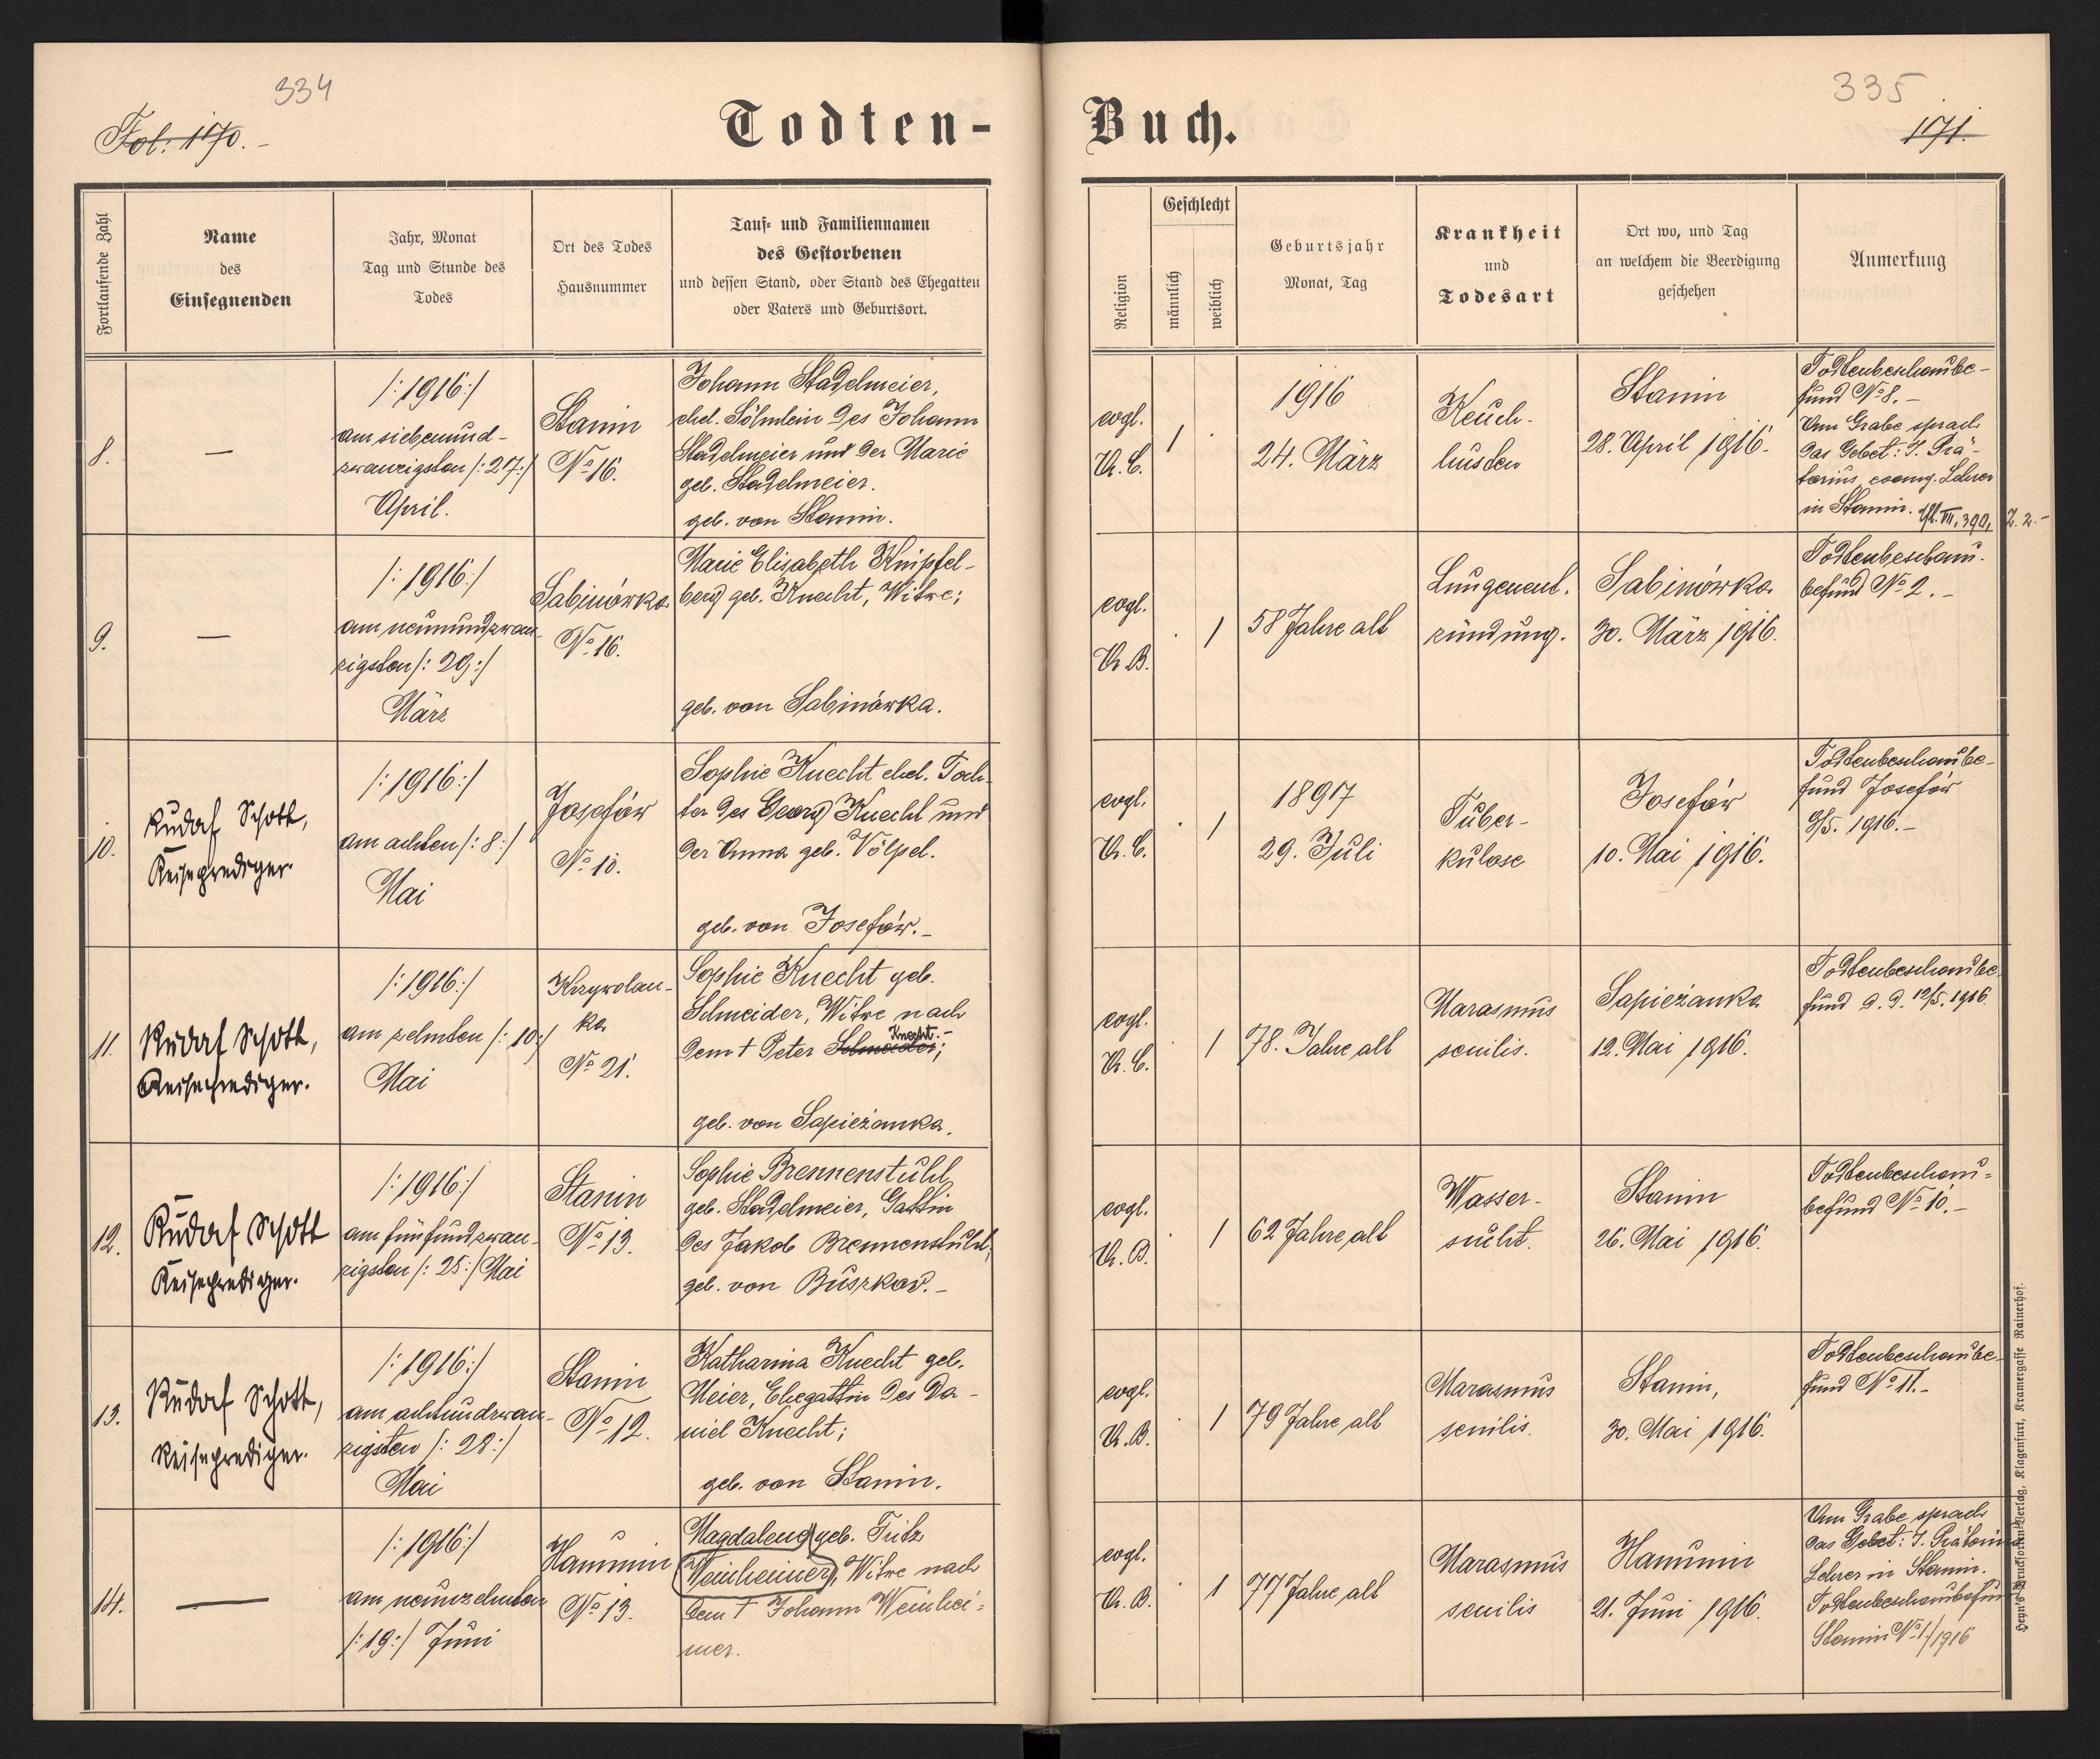 334
Fol: 170.-
Todten-
Fortlaufende Zahl
Name
des
Einsegnenden
Jahr, Monat
Tag und Stunde des
Todes
Ort des Todes
Hausnummer
Tauf= und Familiennamen
des Gestorbenen
und dessen Stand, oder Stand des Ehegatten
oder Vaters und Geburtsort.
8.
—
/:1916:/
am siebenund-
zwanzigsten /:27:/
April.
Stanin
No 16.
Johann Stadelmeier,
ehel. Söhnlein des Johann
Stadelmeier und der Marie
geb. Stadelmeier.
geb. von Stanin.
9.
—
/:1916:/
am neunundzwan-
zigsten /:29:/
März
Sabinówka
No 16.
Marie Elisabeth Knipfel-
berg geb. Knecht, Witwe;
geb. von Sabinówka.
10.
Rudolf Schott,
Reiseprediger.
/:1916:/
am achten /:8:/
Mai
Josefów
No 10.
Sophie Knecht ehel. Toch-
ter des Georg Knecht und
der Anna geb. Völpel.
geb. von Josefów.-
11.
Rudolf Schott,
Reiseprediger.
/:1916:/
am zehnten /:10:/
Mai
Krzywolan-
ka
No 21.
Sophie Knecht geb.
Schneider, Witwe nach
Knecht.-
dem † Peter Schneider;
geb. von Sapieżanka.
12.
Rudolf Schott
Reiseprediger.
/:1916:/
am fünfundzwan-
zigsten /:25:/ Mai
Stanin
No 13.
Sophie Brennenstuhl
geb. Stadelmeier, Gattin
des Jakob Brennenstuhl,
geb. von Buszkow.-
13.
Rudolf Schott,
Reiseprediger.
/:1916:/
am achtundzwan-
zigsten /:28:/
Mai
Stanin
No 12.
Katharina Knecht geb.
Meier, Ehegattin des Da-
niel Knecht;
geb. von Stanin.
14.
—
/:1916:/
am neunzehnten
/:19:/ Juni
Hanunin
No 13.
Magdalena geb. Fritz
Weinheimer, Witwe nach
dem † Johann Weinhei-
mer.
335
171.
Buch.
Religion
Geschlecht
männlich
weiblich
Geburtsjahr
Monat, Tag
Krankheit
und
Todesart
Ort wo, und Tag
an welchem die Beerdigung
geschehen
Anmerkung
evgl.
A. C.
1
1916
24. März
Keuch-
husten
Stanin
28. April 1916.
Todtenbeschaube-
fund No 8.-
Am Grabe sprach
das Gebet: J. Prä-
torius, evang. Lehrer
in Stanin. VII. 390, Z. 2.-
evgl.
A. B.
1
58 Jahre alt
Lungenent-
zündung.
Sabinówka
30. März 1916.
Todtenbeschau-
befund No 2.-
evgl.
A. C.
1
1897
29. Juli
Tuber-
kulose
Josefów
10. Mai 1916.
Todtenbeschaube-
fund Josefów
9/5. 1916.-
evgl.
A. C.
1
78. Jahre alt
Marasmus
senilis.
Sapieżanka
12. Mai 1916.
Todtenbeschaube-
fund d. d. 12/5. 1916.
evgl.
A. B.
1
62 Jahre alt
Wasser-
sucht.
Stanin
26. Mai 1916.
Todtenbeschau-
befund No 10.-
evgl.
A. B.
1
79 Jahre alt
Marasmus
senilis.
Stanin,
30. Mai 1916.
Todtenbeschaube-
fund No 11.-
evgl.
A. B.
1
77 Jahre alt
Marasmus
senilis
Hanunin
21. Juni 1916.
Am Grabe sprach
das Gebet: J. Prätorius
Lehrer in Stanin.
Todtenbeschaubefund
Stanin No 1/1916
Heyn's Drucksorten-Verlag, Klagenfurt, Kramergasse Rainerhof.